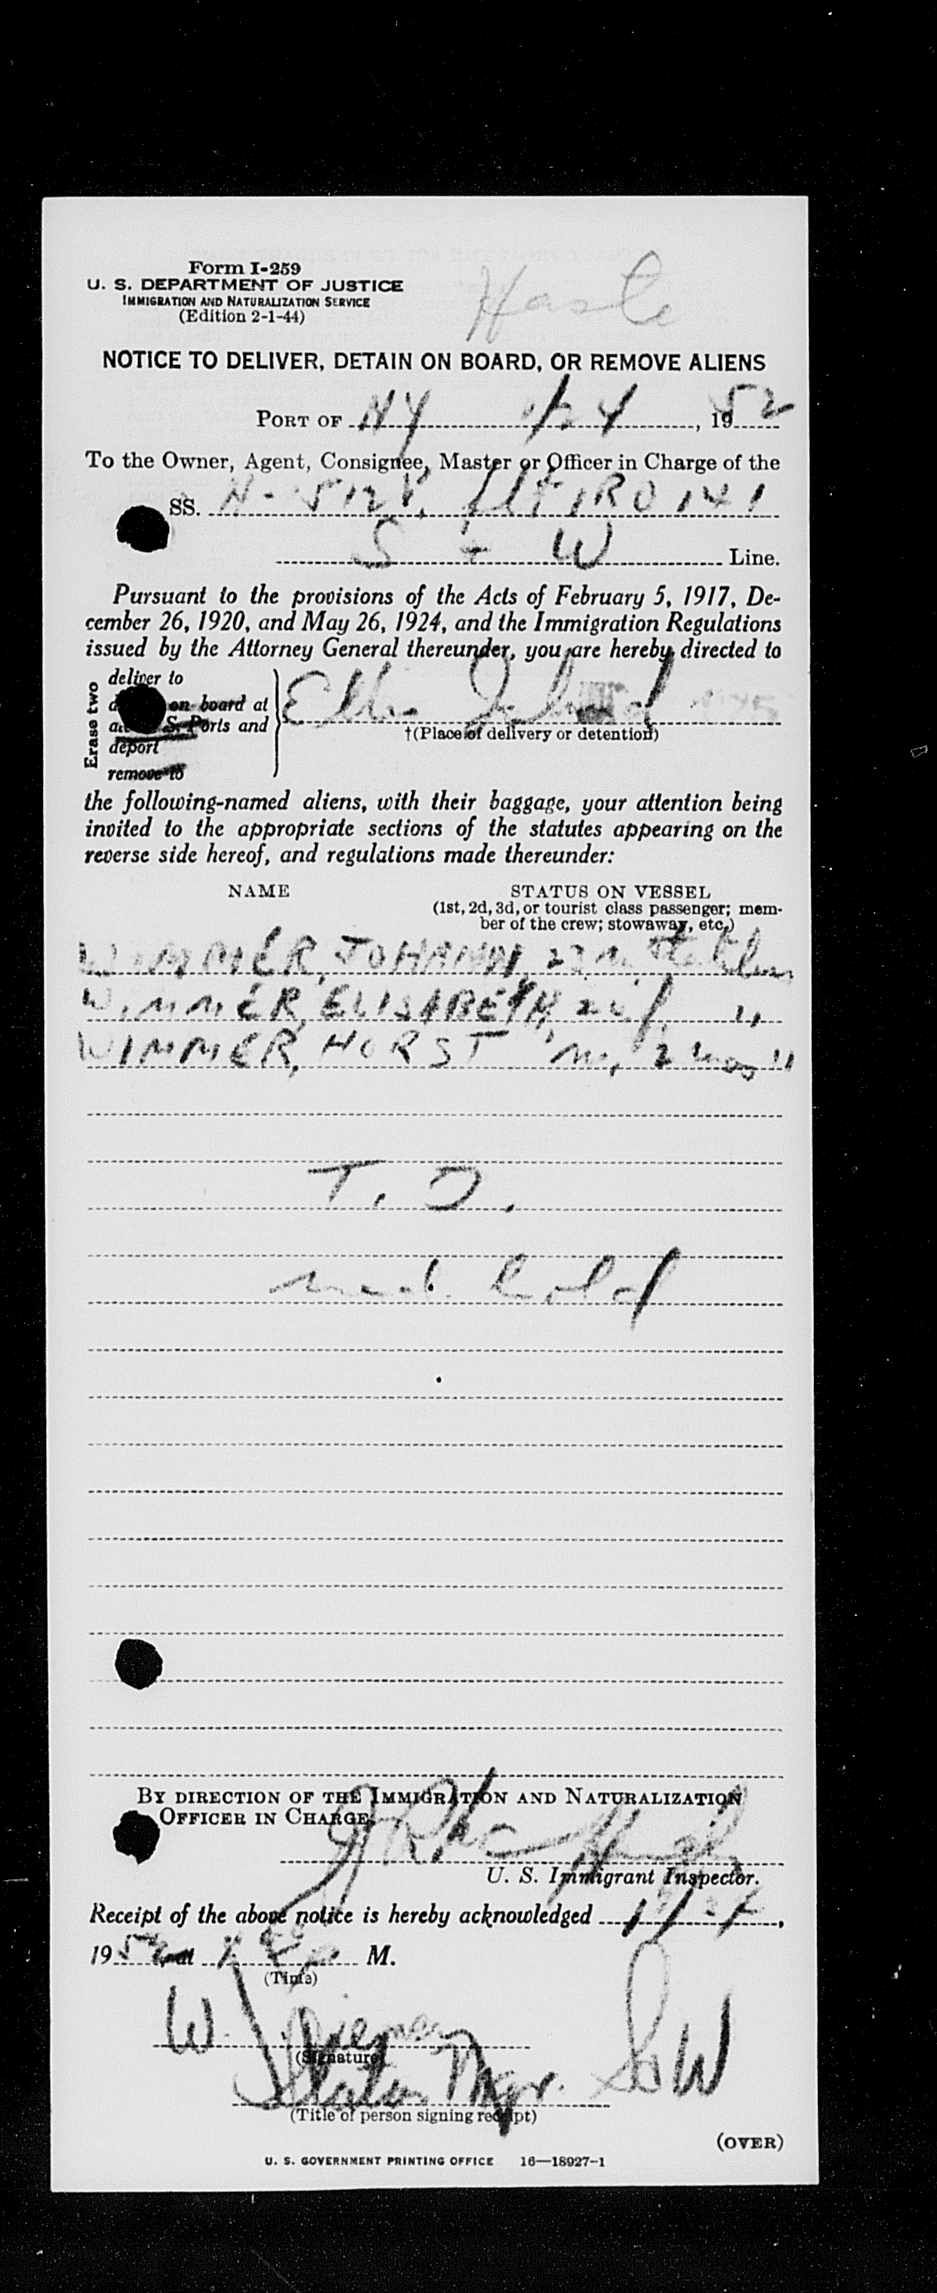 Form I-259
U. S. DEPARTMENT OF JUSTICE
IMMIGRATION AND NATURALIZATION SERVICE
(Edition 2-1-44)
NOTICE TO DELIVER, DETAIN ON BOARD, OR REMOVE ALIENS
PORT OF NY 1/24, 1952
To the Owner, Agent, Consignee, Master or Officer in Charge of the
SS. N-512V, flt IRO 141
S + W Line.
Pursuant to the provisions of the Acts of February 5, 1917, De-
cember 26, 1920, and May 26, 1924, and the Immigration Regulations
issued by the Attorney General thereunder, you are hereby directed to
Erase two
deliver to
on board at
S. Ports and
deport
remove to
Ellis Island
†(Place of delivery or detention)
the following-named aliens, with their baggage, your attention being
invited to the appropriate sections of the statutes appearing on the
reverse side hereof, and regulations made thereunder:
NAME STATUS ON VESSEL
(1st, 2d, 3d, or tourist class passenger; mem-
ber of the crew; stowaway, etc.)
WIMMER, JOHANN, 27 m,
WIMMER, ELISABETH, f, "
WIMMER, HORST m, 2 mos "
T. D.
med. hold
BY DIRECTION OF THE IMMIGRATION AND NATURALIZATION
OFFICER IN CHARGE
U. S. Immigrant Inspector.
Receipt of the above notice is hereby acknowledged
1952 at M.
(Time)
W
(Signature)
Station Mgr. S W
(Title of person signing receipt)
(OVER)
U. S. GOVERNMENT PRINTING OFFICE 16—18927-1